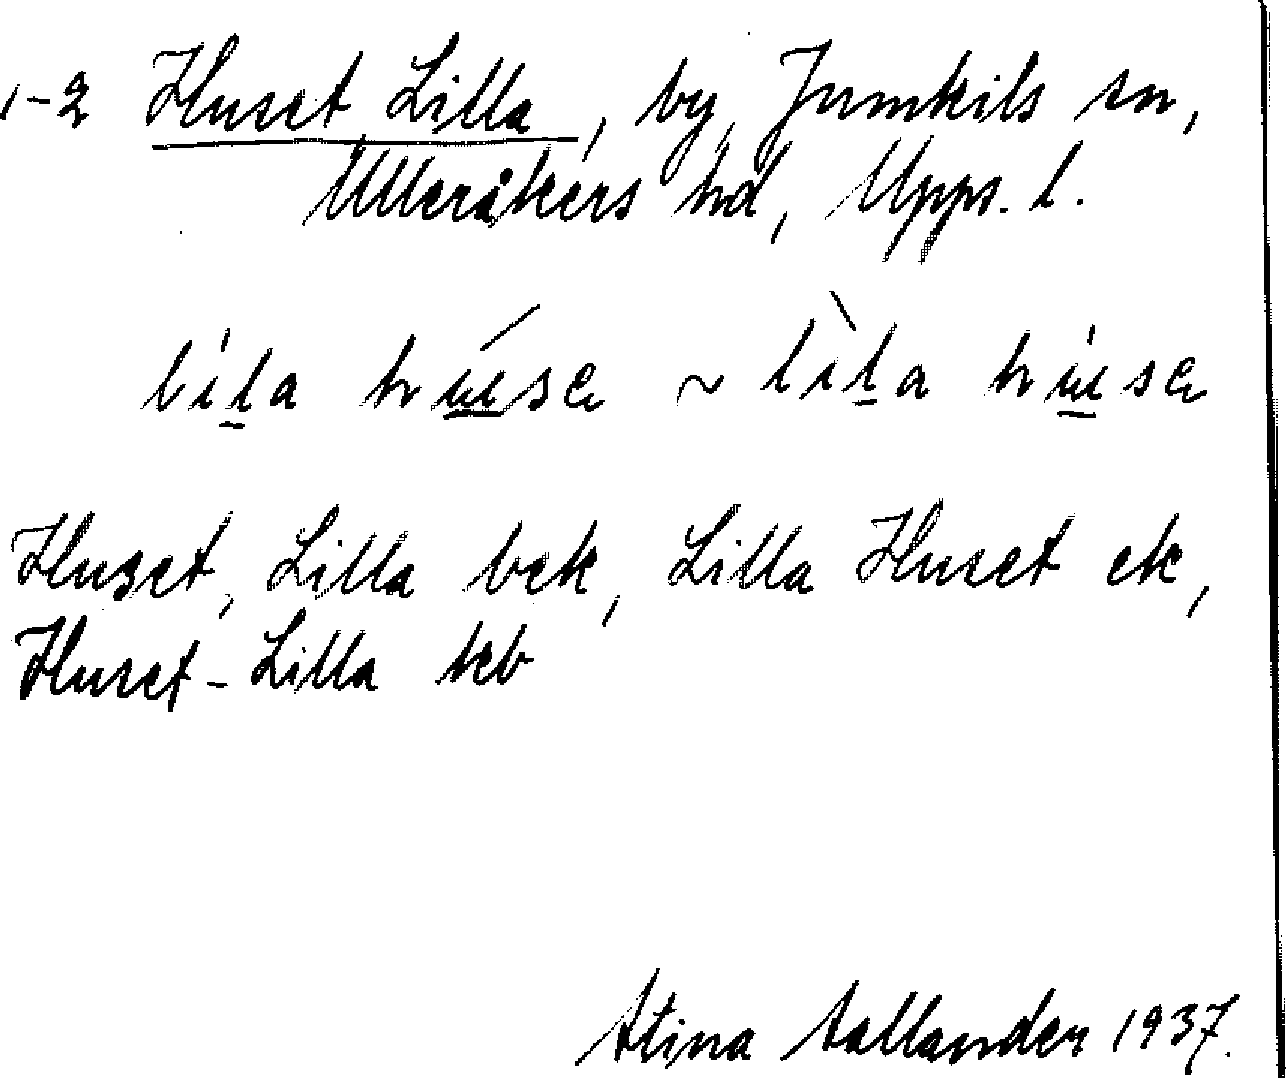 1-2 Huset Lilla, by, Jumkils sn,
Ulleråkers hd, Upps. l.
lila húse ~ lìla huse
Huset, Lilla bek, Lilla Huset ek,
Huset-Lilla keb
Stina Sallander 1937.